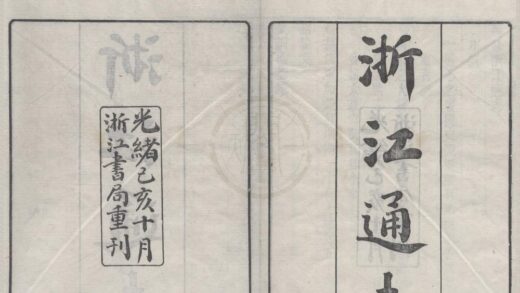 浙江通
光緒己亥十月
浙江書局重刊